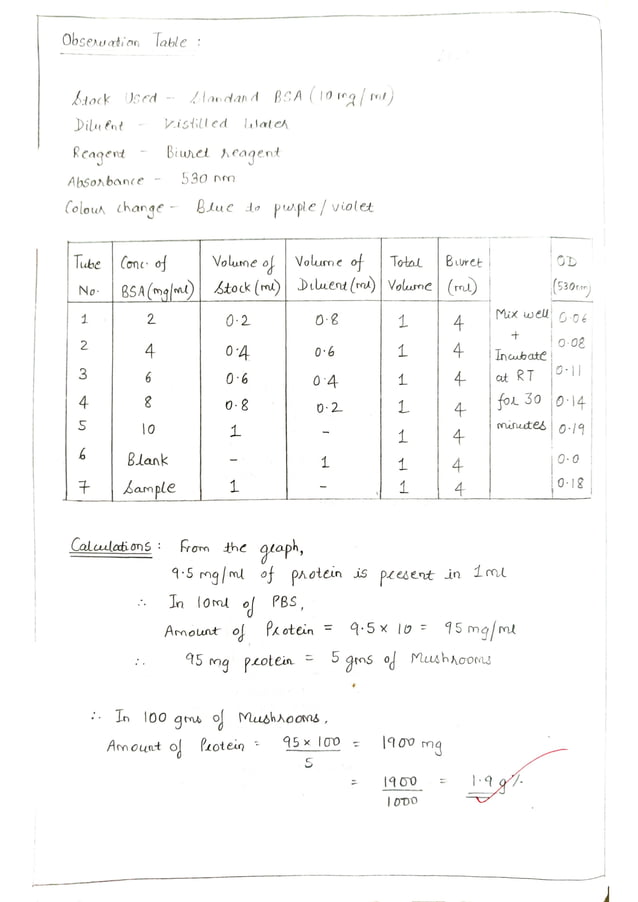 Observation Table :
Stock Used - Standard BSA (10 mg/ml)
Diluent - Distilled Water
Reagent - Biuret reagent
Absorbance - 530 nm
Colour change - Blue to purple/violet
Tube No. Conc. of BSA (mg/ml) Volume of Stock (ml) Volume of Diluent (ml) Total Volume Biuret (ml) OD (530nm)
1 2 0.2 0.8 1 4 Mix well 0.06
+
2 4 0.4 0.6 1 4 Incubate 0.08
3 6 0.6 0.4 1 4 at RT 0.11
4 8 0.8 0.2 1 4 for 30 0.14
5 10 1 - 1 4 minutes 0.19
6 Blank - 1 1 4 0.0
7 Sample 1 - 1 4 0.18
Calculations : From the graph,
9.5 mg/ml of protein is present in 1ml
∴ In 10ml of PBS,
Amount of Protein = 9.5 x 10 = 95 mg/ml
∴ 95 mg protein = 5 gms of Mushrooms
∴ In 100 gms of Mushrooms,
Amount of Protein = 95 x 100 / 5 = 1900 mg
= 1900 / 1000 = 1.9 g%